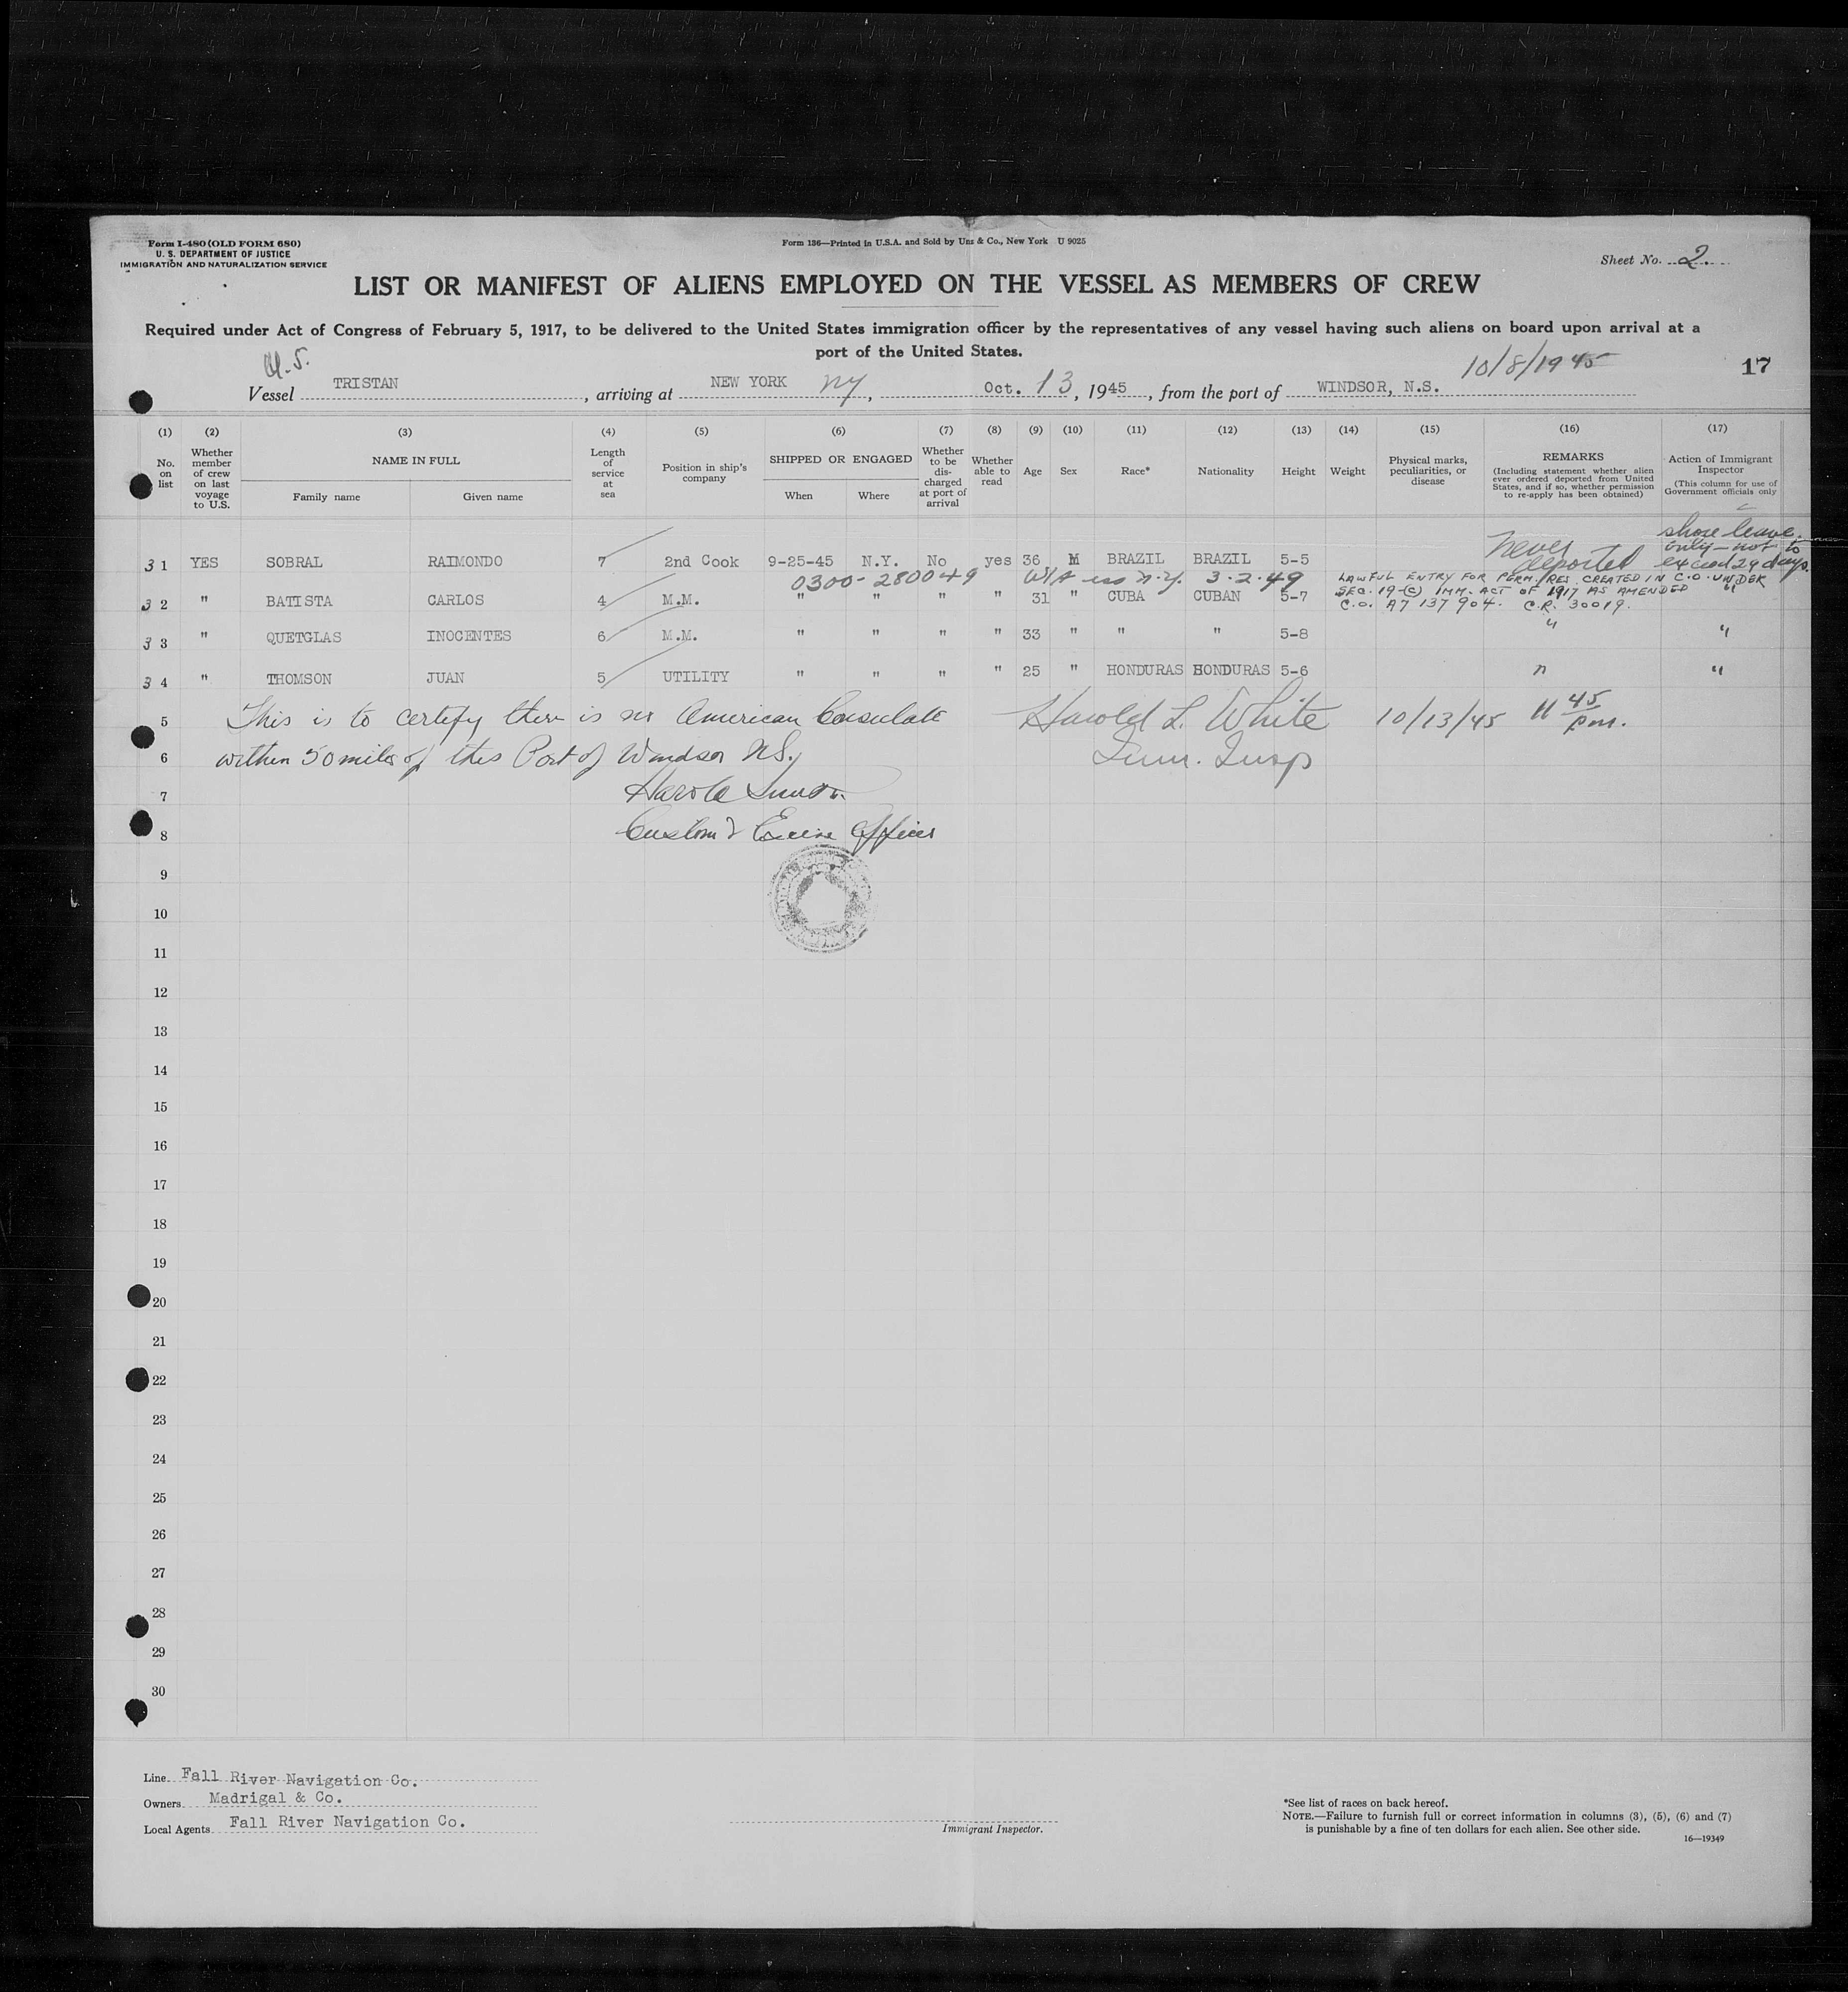 Form I-480 (OLD FORM 680)
U. S. DEPARTMENT OF JUSTICE
IMMIGRATION AND NATURALIZATION SERVICE
Form 136—Printed in U.S.A. and Sold by Unz & Co., New York U 9025
Sheet No. 2.
LIST OR MANIFEST OF ALIENS EMPLOYED ON THE VESSEL AS MEMBERS OF CREW
Required under Act of Congress of February 5, 1917, to be delivered to the United States immigration officer by the representatives of any vessel having such aliens on board upon arrival at a
port of the United States.
10/8/1945
17
Vessel TRISTAN, arriving at NEW YORK NY, Oct. 13, 1945, from the port of WINDSOR, N.S.
(1) (2) (3) (4) (5) (6) (7) (8) (9) (10) (11) (12) (13) (14) (15) (16) (17)
No. on list
Whether member of crew on last voyage to U.S.
NAME IN FULL
Family name
Given name
Length of service at sea
Position in ship's company
SHIPPED OR ENGAGED
When
Where
Whether to be discharged at port of arrival
Whether able to read
Age
Sex
Race*
Nationality
Height
Weight
Physical marks, peculiarities, or disease
REMARKS
(Including statement whether alien ever ordered deported from United States, and if so, whether permission to re-apply has been obtained)
Action of Immigrant Inspector
(This column for use of Government officials only
31 YES SOBRAL RAIMONDO 7 2nd Cook 9-25-45 N.Y. No yes 36 M BRAZIL BRAZIL 5-5 never deported shore leave only—not to exceed 29 days.
0300-280049 W/A iss N.Y. 3.2.49
LAWFUL ENTRY FOR PERM. RES. CREATED IN C.O. UNDER
SEC. 19-(C) IMM. ACT OF 1917 AS AMENDED
C.O. A7 137 904. C.R. 30019.
32 " BATISTA CARLOS 4 M.M. " " " " 31 " CUBA CUBAN 5-7 "
33 " QUETGLAS INOCENTES 6 M.M. " " " " 33 " " " 5-8 " "
34 " THOMSON JUAN 5 UTILITY " " " " 25 " HONDURAS HONDURAS 5-6 " "
5 This is to certify there is no American Consulate Harold L. White 10/13/45 11 45 pm.
6 within 50 miles of this Port of Windsor NS. Imm. Insp
7 Harold
8 Customs & Excise Officer
9
10
11
12
13
14
15
16
17
18
19
20
21
22
23
24
25
26
27
28
29
30
Line Fall River Navigation Co.
Owners Madrigal & Co.
Local Agents Fall River Navigation Co.
Immigrant Inspector.
*See list of races on back hereof.
NOTE.—Failure to furnish full or correct information in columns (3), (5), (6) and (7)
is punishable by a fine of ten dollars for each alien. See other side.
16—19349